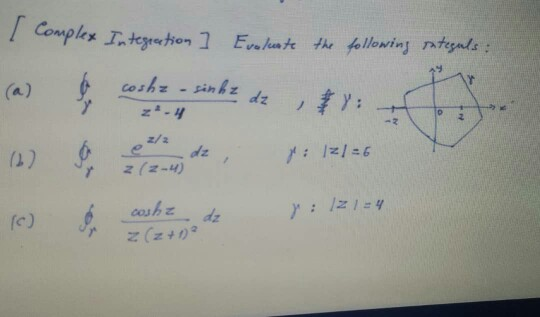 [ Complex Integration ] Evaluate the following integrals :
(a) ∮γ (coshz - sinhz)/(z² - 4) dz , γ : y γ -2 0 2 x
(b) ∮γ e^(z/2)/(z(z-4)) dz , γ : |z| = 6
(c) ∮γ coshz/(z(z+1)²) dz γ : |z| = 4